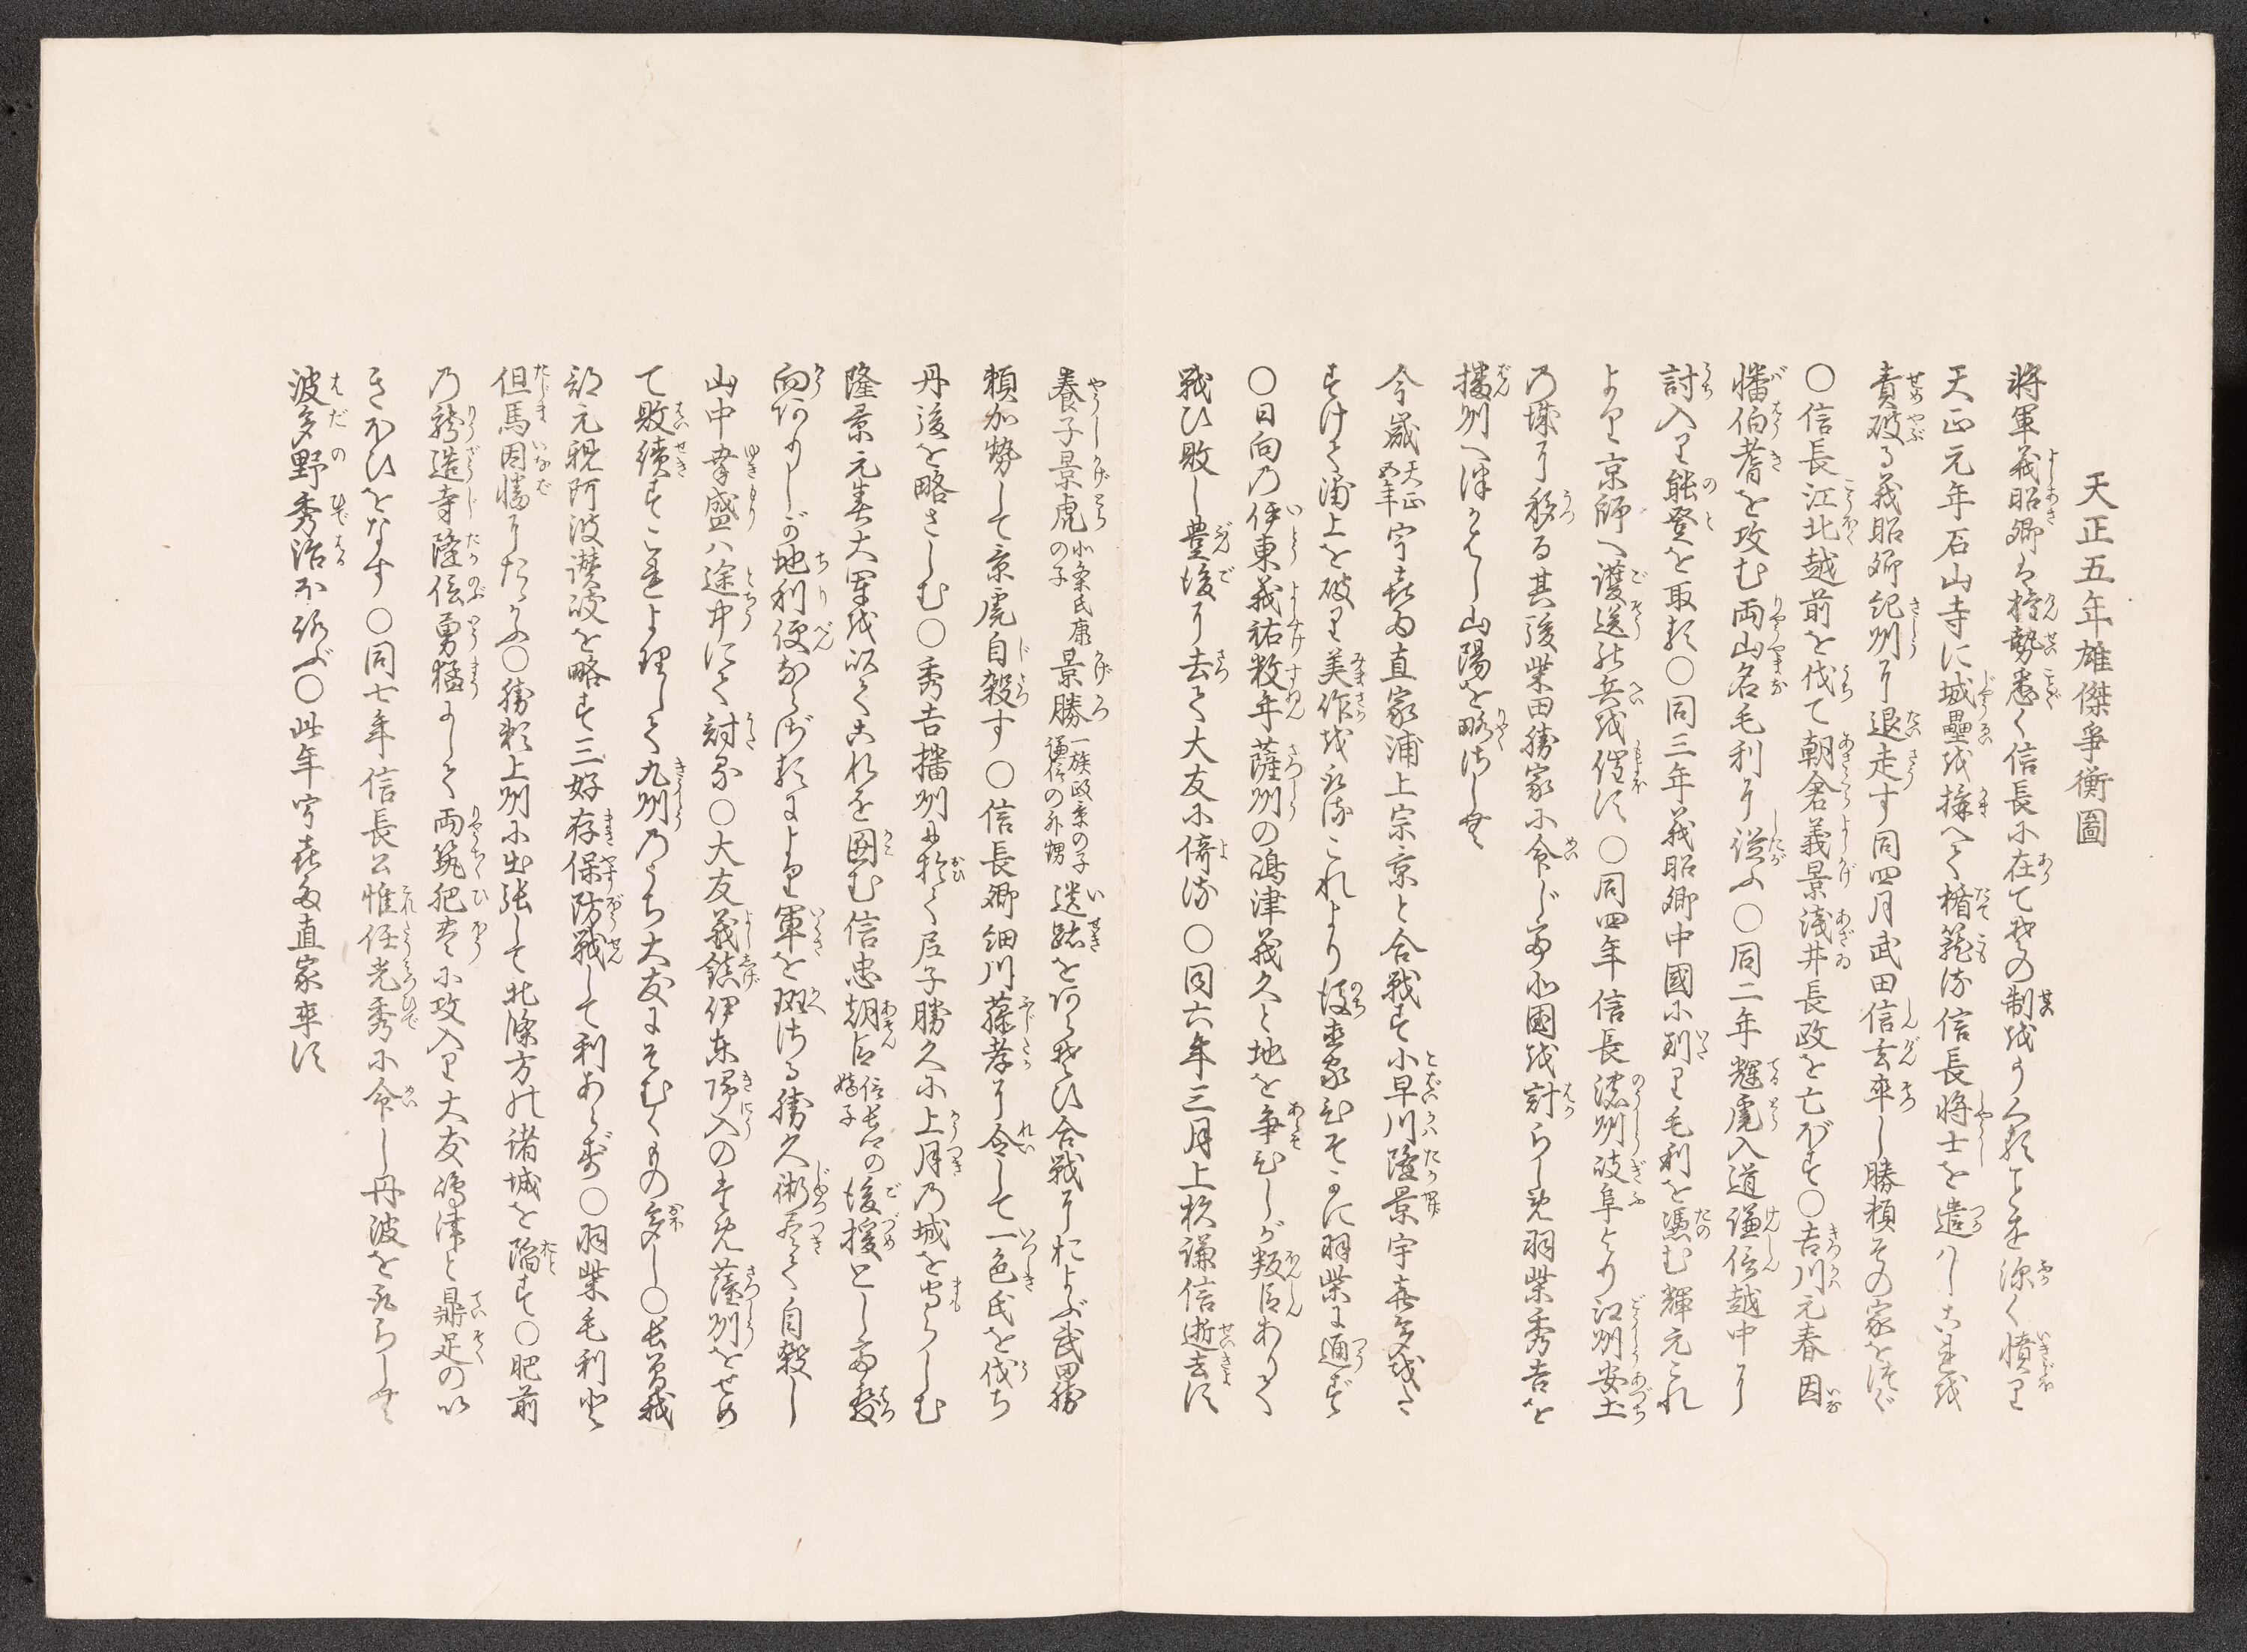 天正五年雄傑爭衡圖
将軍義昭卿は權勢悉く信長に在て其の制をうくることを深く憤り
天正元年石山寺に城壘を搆へて楯籠る信長将士を遣はしこれを
責破る義昭卿紀州に退走す同四月武田信玄卒し勝頼その家をつぐ
〇信長江北越前を伐て朝倉義景浅井長政を亡ぼす〇吉川元春因
幡伯耆を攻む両山名毛利に従ふ〇同二年輝虎入道謙信越中に
討入り能登を取る〇同三年義昭卿中國に到り毛利を憑む輝元これ
より京師へ護送の兵を催す〇同四年信長濃州岐阜より江州安土
の城に移る其後柴田勝家に令じて北國を討らしめ羽柴秀吉を
播州へつかはし山陽を略せしむ
今歳天正五年宇喜多直家浦上宗景と合戦す小早川隆景宇喜多をた
すけて浦上を破り美作を取るこれより後直家ひそかに羽柴に通ず
〇日向の伊東義祐数年薩州の嶋津義久と地を争ひしが叛臣ありて
戦ひ敗し豊後に去て大友に倚る〇同六年三月上杦謙信逝去す
養子景虎北条氏康の子景勝一族政景の子謙信の外甥遺跡をあらそひ合戦におよぶ武田勝
頼加勢して景虎自殺す〇信長卿細川藤孝に令して一色氏を伐ち
丹後を略さしむ〇秀吉播州に於て尼子勝久に上月の城を守らしむ
隆景元春大軍を以てこれを囲む信忠朝臣信長公の嫡子後援として發
向ありしが地利便ならざるによりて軍を班さる勝久術尽て自殺し
山中幸盛ハ途中にて討る〇大友義鎮伊東帰入のため薩州をせめ
て敗績すこれより九州のうち大友にそむくもの多し〇長曽我
部元親阿波讃岐を略す三好存保防戦して利あらず〇羽柴毛利と
但馬因幡にたゝかふ〇勝頼上州に出張して北條方の諸城を陥す〇肥前
の龍造寺隆信勇猛にして両筑肥後に攻入り大友嶋津と鼎足のい
きほひをなす〇同七年信長公惟任光秀に令し丹波を取らしむ
波多野秀治ほろぶ〇此年宇喜多直家卒す